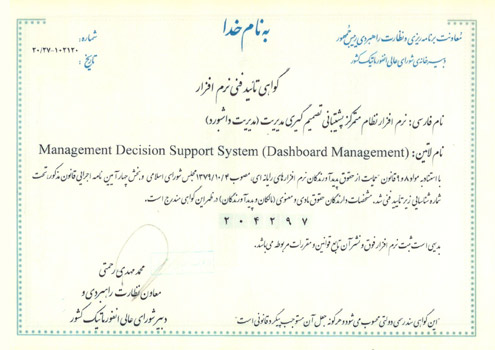 به نام خدا
معاونت برنامه ریزی و نظارت راهبردی رییس جمهور
دبیرخانه‌ی شورای عالی انفورماتیک کشور
شماره: ۲۰/۲۷-۱۰۲۱۲۰
تاریخ:
گواهی تائید فنی نرم افزار
نام فارسی: نرم افزار نظام متمرکز پشتیبانی تصمیم گیری مدیریت (مدیریت داشبورد)
نام لاتین: Management Decision Support System (Dashboard Management)
با استناد به مواد ۸ و ۹ قانون "حمایت از حقوق پدیدآورندگان نرم افزارهای رایانه ای، مصوب ۱۳۷۹/۱۰/۴ مجلس شورای اسلامی و بخش چهار آیین نامه اجرایی قانون مذکور تحت
شماره شناسایی زیر تایید فنی شد. مشخصات دارندگان حقوق مادی و معنوی (مالکان و پدیدآورندگان) در ظهر این گواهی مندرج است.
۲۰۴۲۹۷
بدیهی است ثبت نرم افزار فوق و نشر آن تابع قوانین و مقررات مربوطه می باشد.
محمد مهدی رحمتی
معاون نظارت راهبردی و
دبیر شورای عالی انفورماتیک کشور
"این گواهی سندرسمی دولتی محسوب می شود و هرگونه جعل آن مستوجب پیگرد قانونی است"